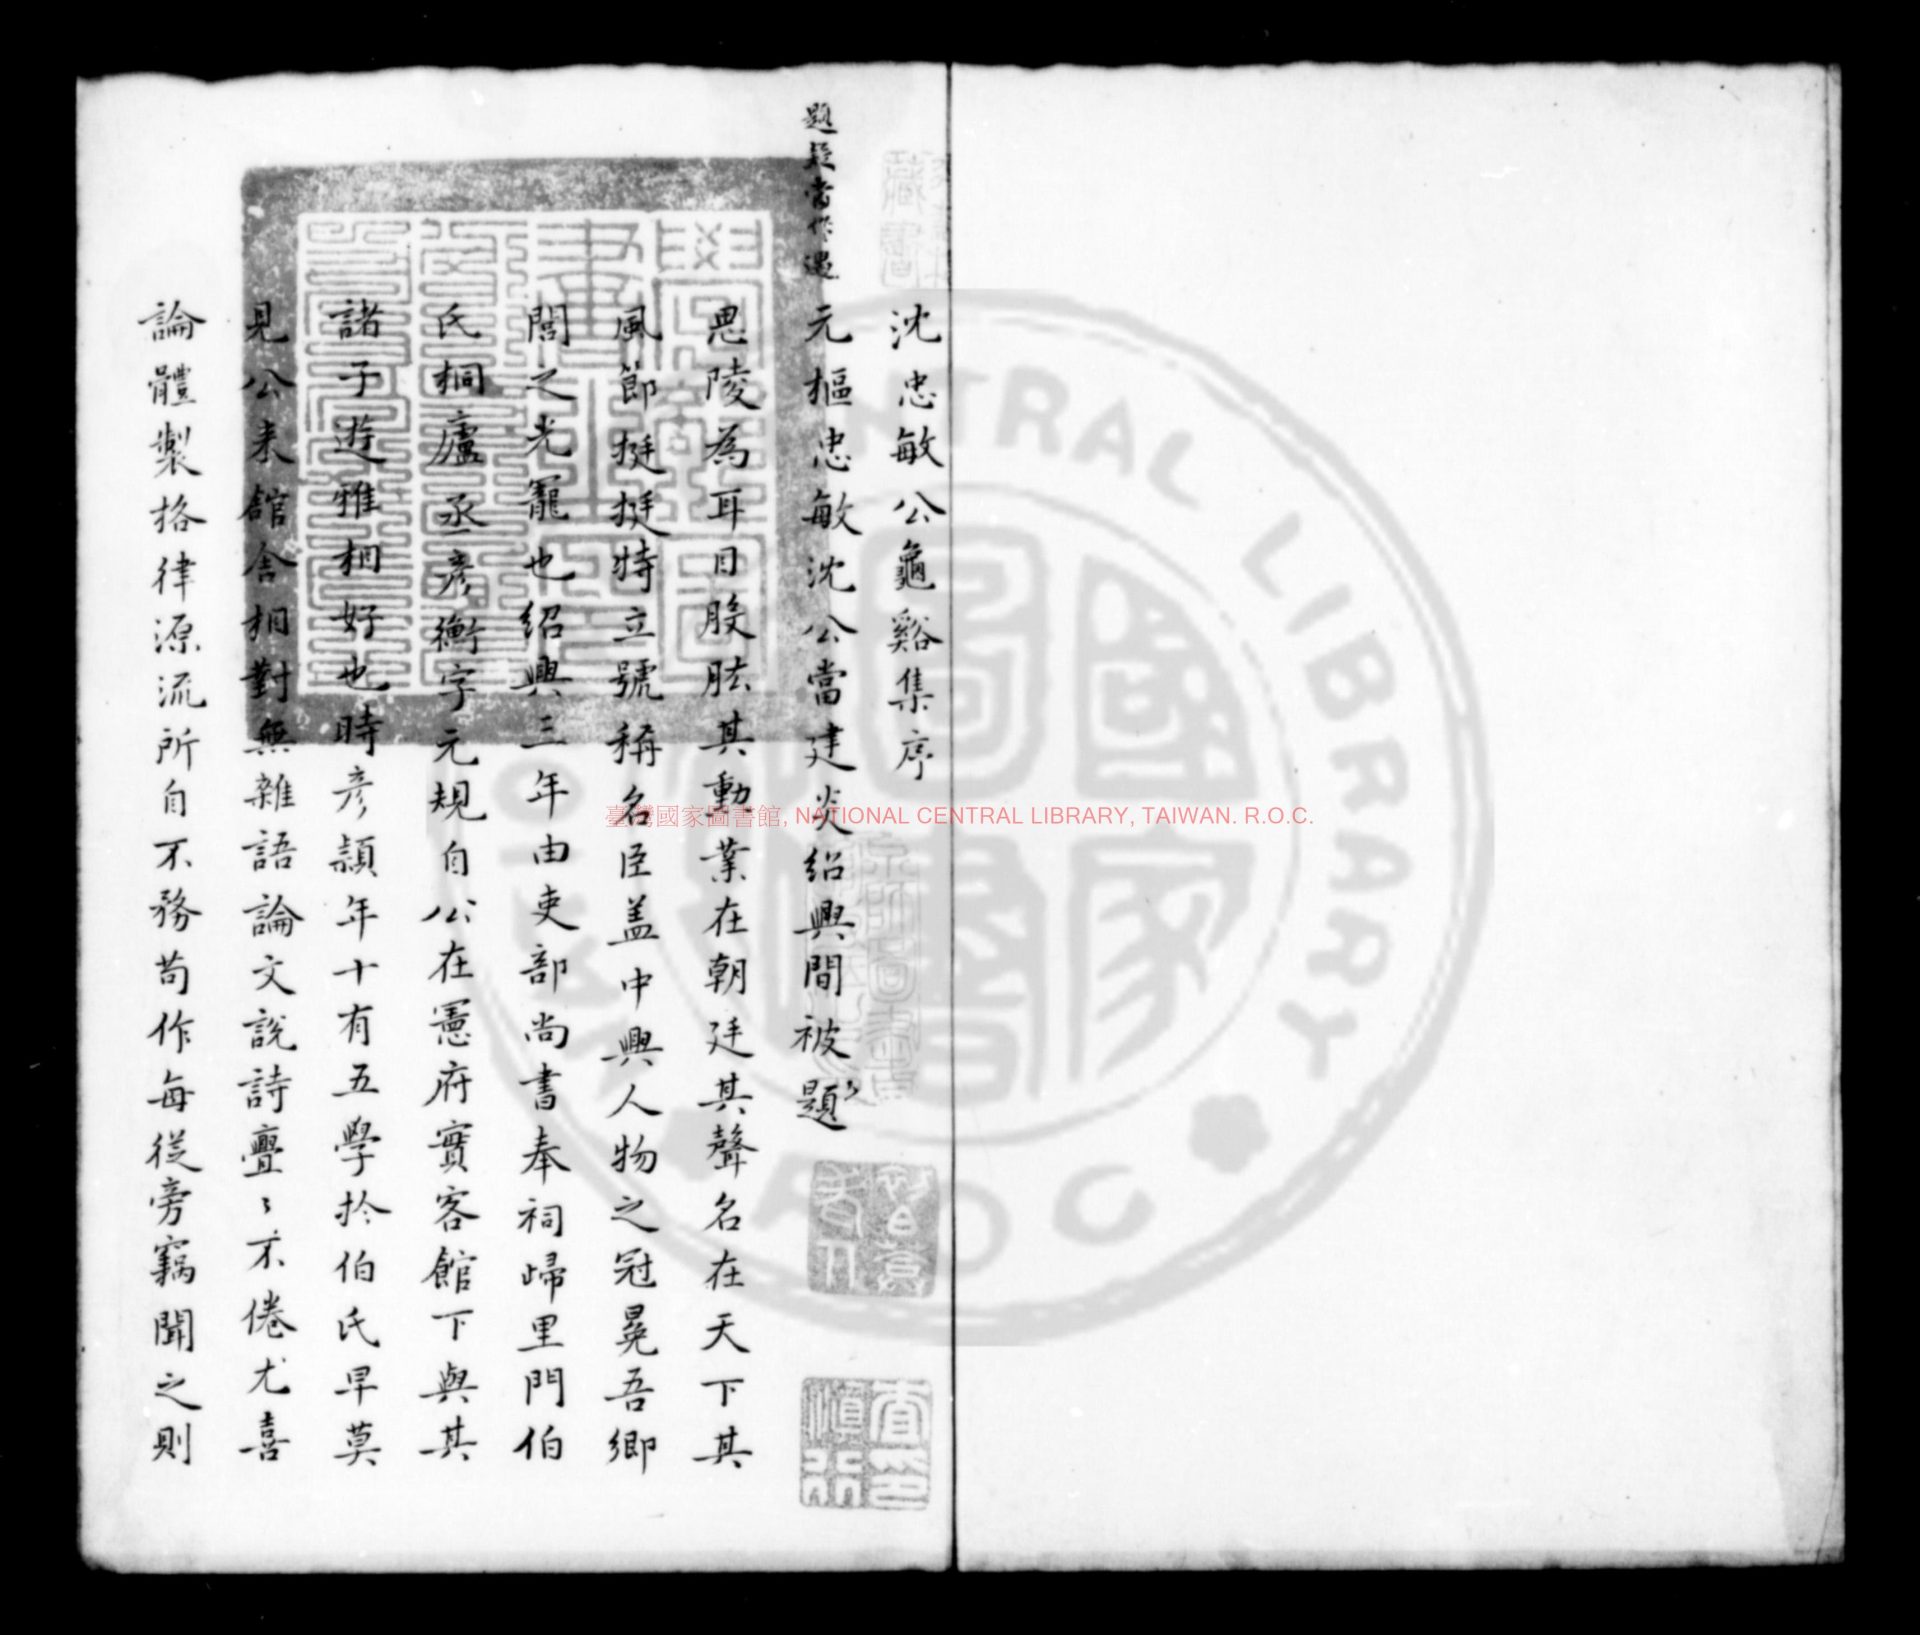 沈忠敏公龜谿集序
題疑當作遇
元樞忠敏沈公當建炎紹興間被題
思陵為耳目股肱其勳業在朝廷其聲名在天下其
風節挺挺特立號稱名臣盖中興人物之冠冕吾鄉
閭之光寵也紹興三年由吏部尚書奉祠歸里門伯
氏桐廬丞彦衡字元規自公在憲府賓客館下與其
諸子遊雅相好也時彦潁年十有五學扵伯氏早莫
見公來館舍相對無雜語論文說詩亹〻不倦尤喜
論體製格律源流所自不務苟作每從旁竊聞之則
臺灣國家圖書館, NATIONAL CENTRAL LIBRARY, TAIWAN. R.O.C.